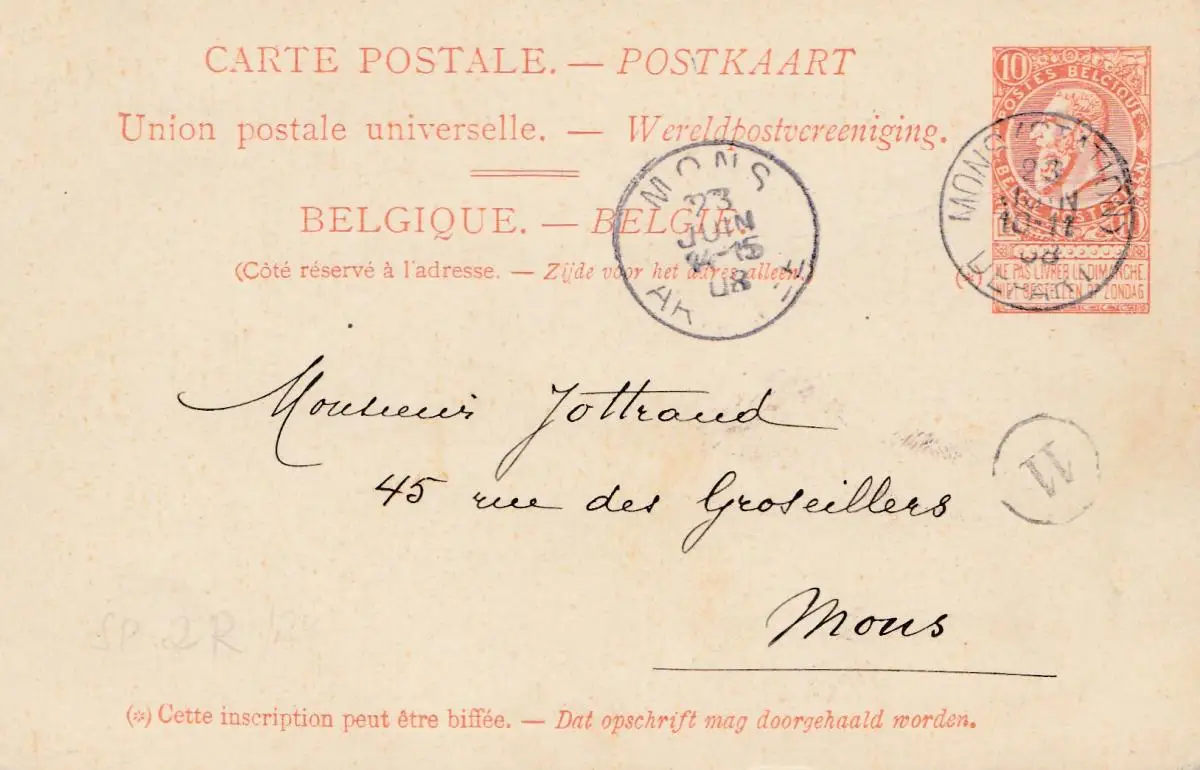 CARTE POSTALE. — POSTKAART
Union postale universelle. — Wereldpostvereeniging.
BELGIQUE. — BELGIË.
(Côté réservé à l'adresse. — Zijde voor het adres alleen.)
10
POSTES BELGIQUE
NE PAS LIVRER LE DIMANCHE
NIET BESTELLEN OP ZONDAG
MONS (STATION)
23
JUIN
10-11
08
MONS
23
JUIN
14-15
08
Monsieur Jottrand
45 rue des Groseillers
Mons
11
SP. 2R
(*) Cette inscription peut être biffée. — Dat opschrift mag doorgehaald worden.